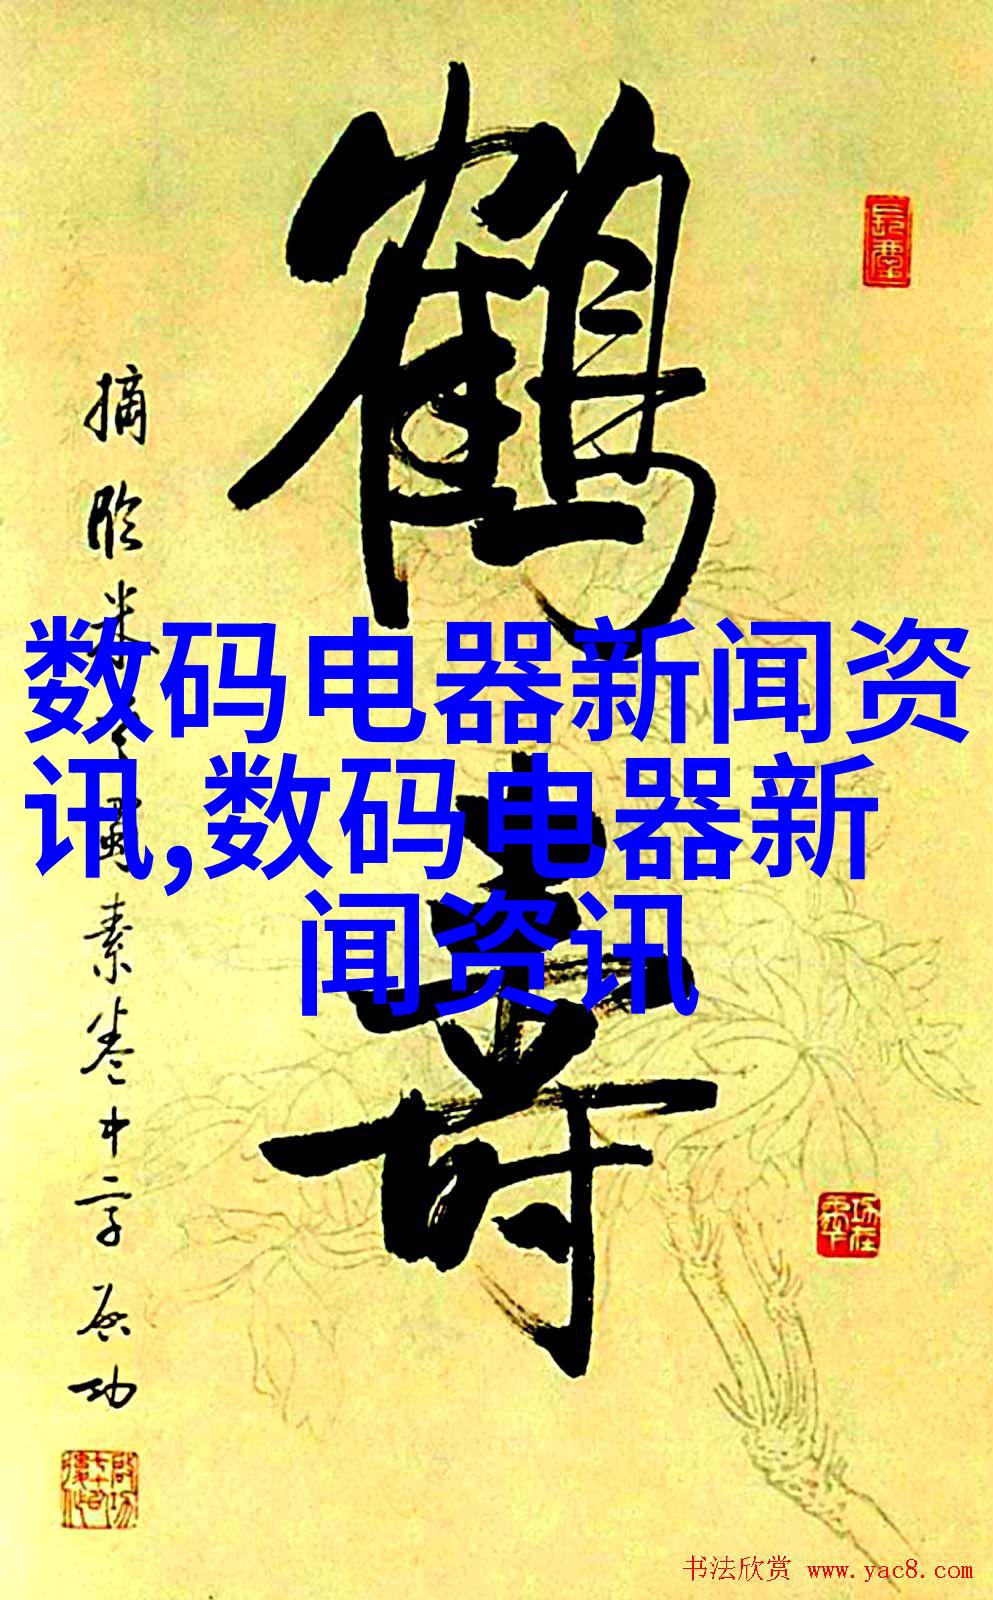 鹤寿
摘临米
蜀素卷中字启功
数码电器新闻资
讯,数码电器新
闻资讯
书法欣赏 www.yac8.com